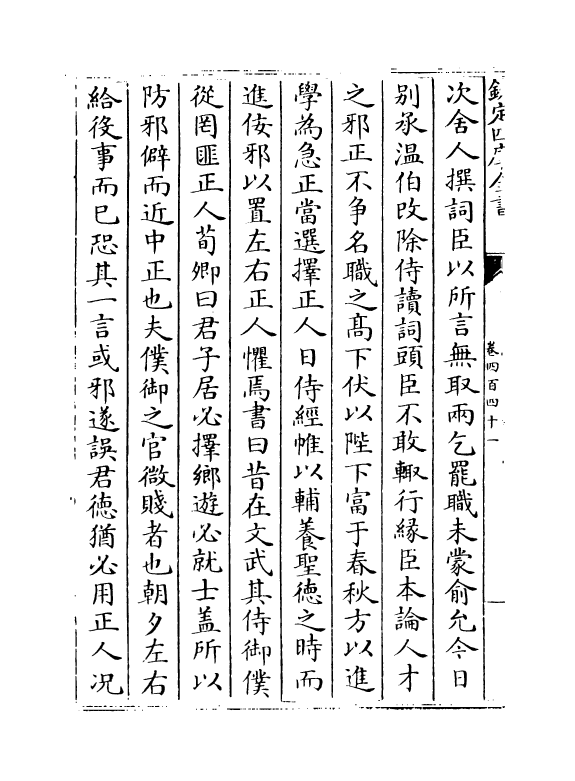 欽定四庫全書
卷四百四十一
次舍人撰詞臣以所言無取兩乞罷職未蒙俞允今日
别承温伯改除侍讀詞頭臣不敢輙行緣臣本論人才
之邪正不争名職之髙下伏以陛下富于春秋方以進
學為急正當選擇正人日侍經帷以輔養聖德之時而
進佞邪以置左右正人懼焉書曰昔在文武其侍御僕
從罔匪正人荀卿曰君子居必擇鄉遊必就士盖所以
防邪僻而近中正也夫僕御之官微賤者也朝夕左右
給役事而已恐其一言或邪遂誤君德猶必用正人况